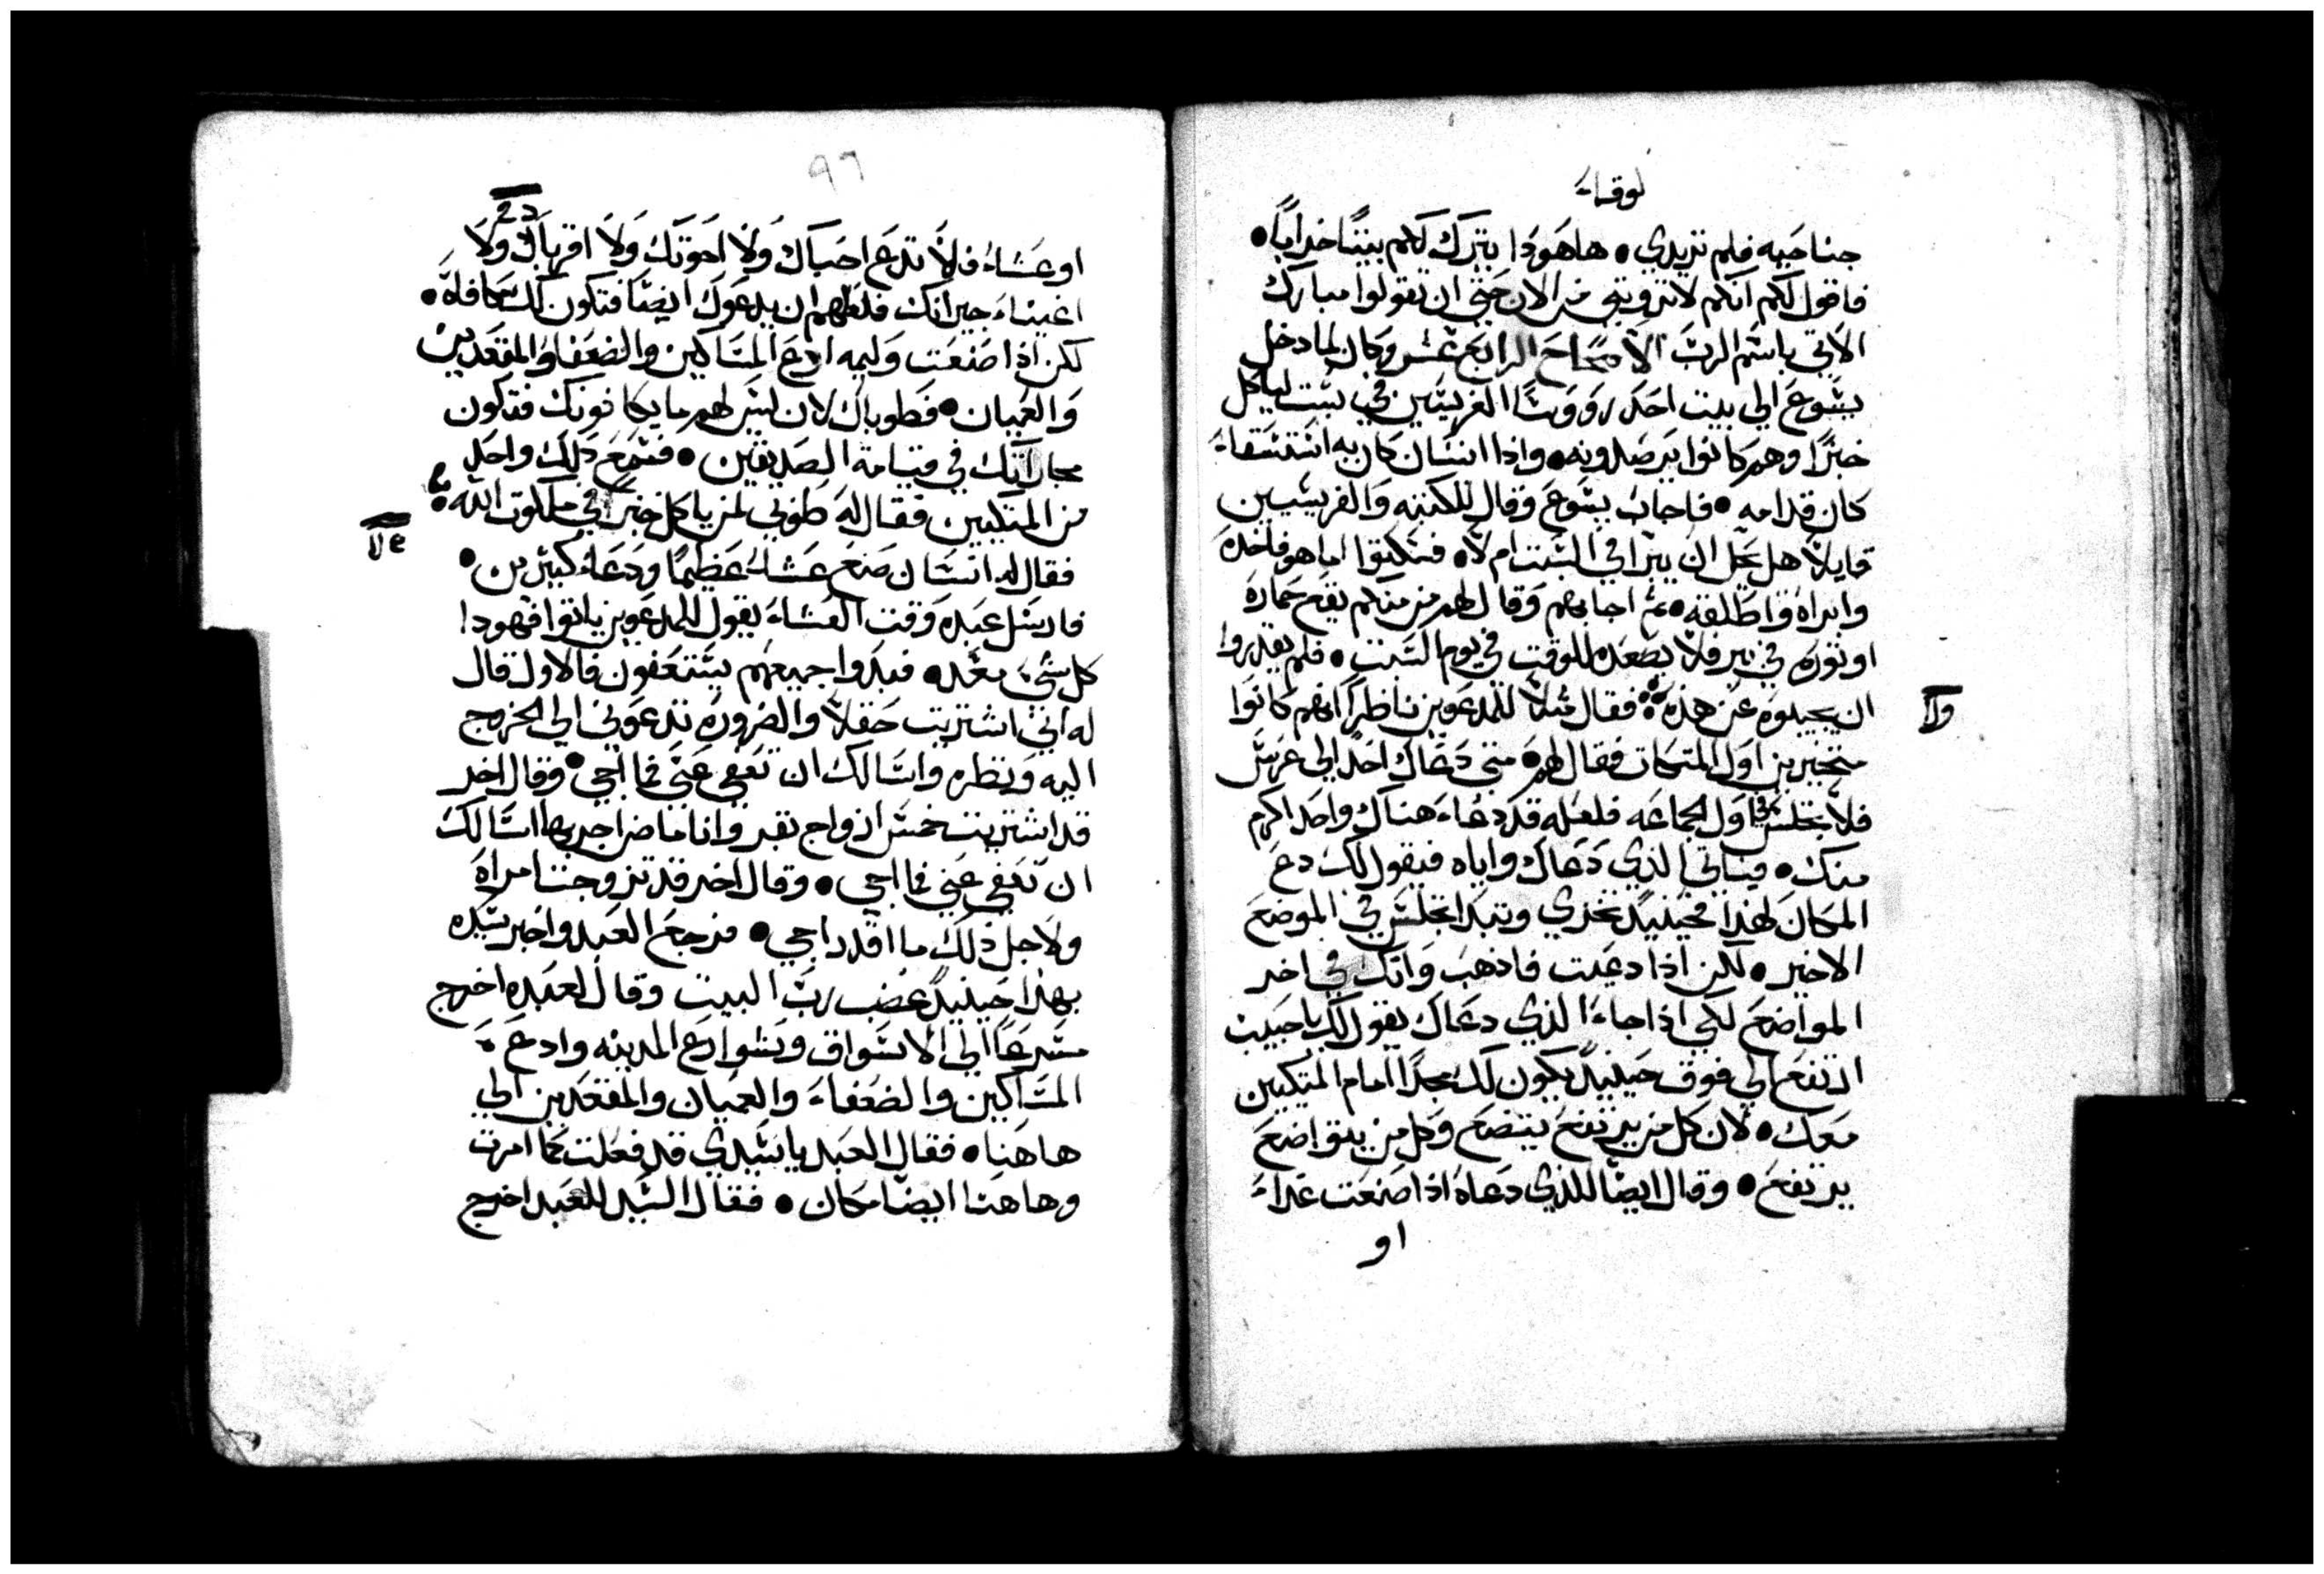 لوقاء
جناحيه فلم تريدي • هاهودا يترك لكم بيتًا خرابًا •
فاقول لكم انكم لا تروني من الان حتي ان تقولوا مبارك
الاتي باسم الرب الاصحاح الرابع عشر وكان لما دخل
يسوع الي بيت احد رووسا الفريسين في سبت لياكل
خبزًا وهم كانوا يرصدونه • واذا انسان كان به استسقاء
كان قدامه • فاجاب يسوع وقال للكتبه والفريسيين
قايلاً هل يحل ان يبرا في السبت ام لا • فسكتوا اما هو فاخده
وابراه واطلقه • ثم اجابهم وقال لهم من منكم يقع حماره
او توره في بير فلا يصعده للوقت في يوم السبت • فلم يقدروا
ان يجيبوه عن هده فقال مثلاً للمدعوين ناظرًا انهم كانوا
ولا
متخيرين اول المتكات فقال لهم • متي دعاك احد الي عرس
فلا تجلس في اول الجماعه فلعله قد دعاء هناك واحد اكرم
منك • فياتي الذي دعاك واياه فيقول لك دع
المكان لهذا فحينيدٍ تخزي وتبدا تجلس في الموضع
الاخير • لكن اذا دعيت فادهب واتك في اخر
المواضع لكي اذا جاء الذي دعاك يقول لك يا حبيب
ارتفع الي فوق حينيدٍ يكون لك مجدًا امام المتكيين
معك • لان كل من يرتفع يتضع وكل من يتواضع
يرتفع • وقال ايضا للذي دعاه اذا صنعت غداء
او
٩٦
او عشاء فلا تدع احباك ولا اخوتك ولا اقرباك ولا
اغنياء جيرانك فلعلهم ان يدعوك ايضًا فتكون لك مكافاه •
لكن اذا صنعت وليمه ادع المساكين والضعفا والمقعدين
والعميان • فطوباك لان ليس لهم ما يكافونك فتكون
مجازاتك في قيامة الصديقين • فسمع ذلك واحد
من المتكيين فقال له طوبي لمن ياكل خبزًا في ملكوت الله
فقال له انسان صنع عشاءً عظيمًا ودعا كثيرين •
فارسل عبده وقت العشاء يقول للمدعوين ياتوا فهودا
كل شي معد • فبدوا جميعهم يستعفون فالاول قال
له اني اشتريت حقلاً والضروره تدعوني الي الخروج
اليه ونظره واسالك ان تعفي عني فما اجي • وقال اخر
قد اشتريت خمس ازواج بقر وانا ماض اجربها اسالك
ان تعفي عني فما اجي • وقال اخر قد تزوجت امراه
ولاجل ذلك ما اقدر اجي • فرجع العبد واخبر سيده
بهذا حينيدٍ غضب رب البيت وقال لعبده اخرج
مسرعًا الي الاسواق وشوارع المدينه وادع
المساكين والضعفاء والعميان والمقعدين الي
هاهنا • فقال العبد يا سيدي قد فعلت كما امرت
وهاهنا ايضًا مكان • فقال السيد للعبد اخرج